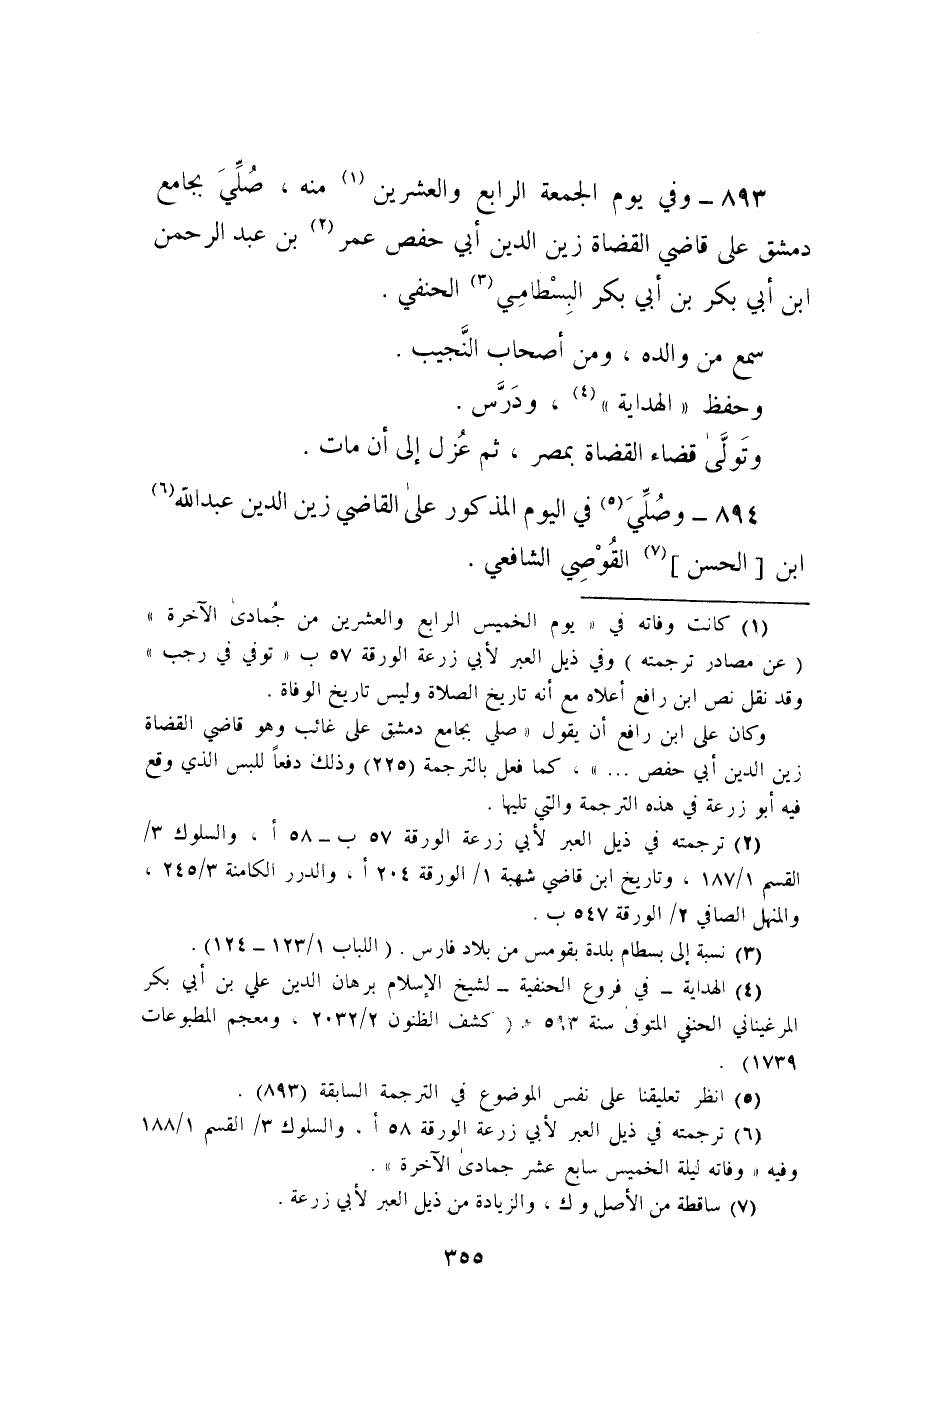 ٨٩٣ ــ وفي يوم الجمعة الرابع والعشرين (١) منه ، صُلِّيَ بجامع
دمشق على قاضي القضاة زين الدين أبي حفص عمر (٢) بن عبد الرحمن
ابن أبي بكر بن أبي بكر البِسْطامِي (٣) الحنفي .
سمع من والده ، ومن أصحاب النَّجيب .
وحفظ « الهداية » (٤) ، ودَرَّس .
وتَولَّىٰ قضاء القضاة بمصر ، ثم عُزل إلى أن مات .
٨٩٤ ــ وصُلِّيَ (٥) في اليوم المذكور علىٰ القاضي زين الدين عبدالله (٦)
ابن [ الحسن ] (٧) القُوْصِي الشافعي .
(١) كانت وفاته في « يوم الخميس الرابع والعشرين من جُمادىٰ الآخرة »
( عن مصادر ترجمته ) وفي ذيل العبر لأبي زرعة الورقة ٥٧ ب « توفي في رجب »
وقد نقل نص ابن رافع أعلاه مع أنه تاريخ الصلاة وليس تاريخ الوفاة .
وكان على ابن رافع أن يقول « صلي بجامع دمشق على غائب وهو قاضي القضاة
زين الدين أبي حفص ... » ، كما فعل بالترجمة (٢٢٥) وذلك دفعاً للبس الذي وقع
فيه أبو زرعة في هذه الترجمة والتي تليها .
(٢) ترجمته في ذيل العبر لأبي زرعة الورقة ٥٧ ب ــ ٥٨ أ ، والسلوك ٣/
القسم ١٨٧/١ ، وتاريخ ابن قاضي شهبة ١/ الورقة ٢٠٤ أ ، والدرر الكامنة ٢٤٥/٣ ،
والمنهل الصافي ٢/ الورقة ٥٤٧ ب .
(٣) نسبة إلى بسطام بلدة بقومس من بلاد فارس . ( اللباب ١٢٣/١ ــ ١٢٤) .
(٤) الهداية ــ في فروع الحنفية ــ لشيخ الإسلام برهان الدين علي بن أبي بكر
المرغيناني الحنفي المتوفىٰ سنة ٥٩٣ هـ ( كشف الظنون ٢٠٣٢/٢ ، ومعجم المطبوعات
١٧٣٩) .
(٥) انظر تعليقنا على نفس الموضوع في الترجمة السابقة (٨٩٣) .
(٦) ترجمته في ذيل العبر لأبي زرعة الورقة ٥٨ أ . والسلوك ٣/ القسم ١٨٨/١
وفيه « وفاته ليلة الخميس سابع عشر جمادىٰ الآخرة » .
(٧) ساقطة من الأصل و ك ، والزيادة من ذيل العبر لأبي زرعة .
٣٥٥